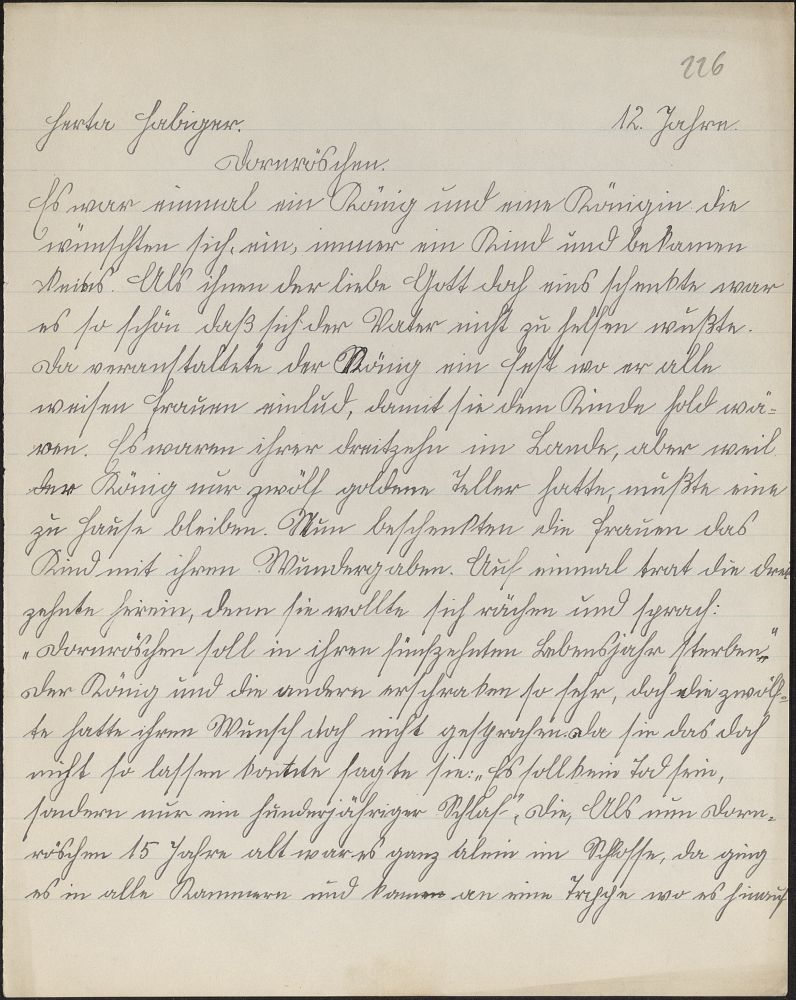 226
Herta Habiger. 12. Jahre.
Dornröschen.
Es war einmal ein König und eine Königin die
wünschten sich, ein, immer ein Kind und bekamen
keins. Als ihnen der liebe Gott doch eins schenkte war
es so schön daß sich der Vater nicht zu helfen wußte.
Da veranstaltete der König ein Fest wo er alle
weisen Frauen einlud, damit sie dem Kinde hold wä-
ren. Es waren ihrer dreitzehn im Lande, aber weil
der König nur zwölf goldene Teller hatte, mußte eine
zu Hause bleiben. Nun beschenkten die Frauen das
Kind mit ihren Wundergaben. Auf einmal trat die drei
zehnte herein, denn sie wollte sich rächen und sprach:
„Dornröschen soll in ihren fünfzehnten Lebensjahr sterben."
Der König und die andern erschraken so sehr, doch die zwölf-
te hatte ihren Wunsch noch nicht gesprochen. Da sie das doch
nicht so lassen konnte sagte sie: „Es soll kein Tod sein,
sondern nur ein hunderjähriger Schlaf", Die, Als nun Dorn-
röschen 15 Jahre alt war es ganz alein im Schlosse, da ging
es in alle Kammern und kamen an eine Treppe wo es hinauf